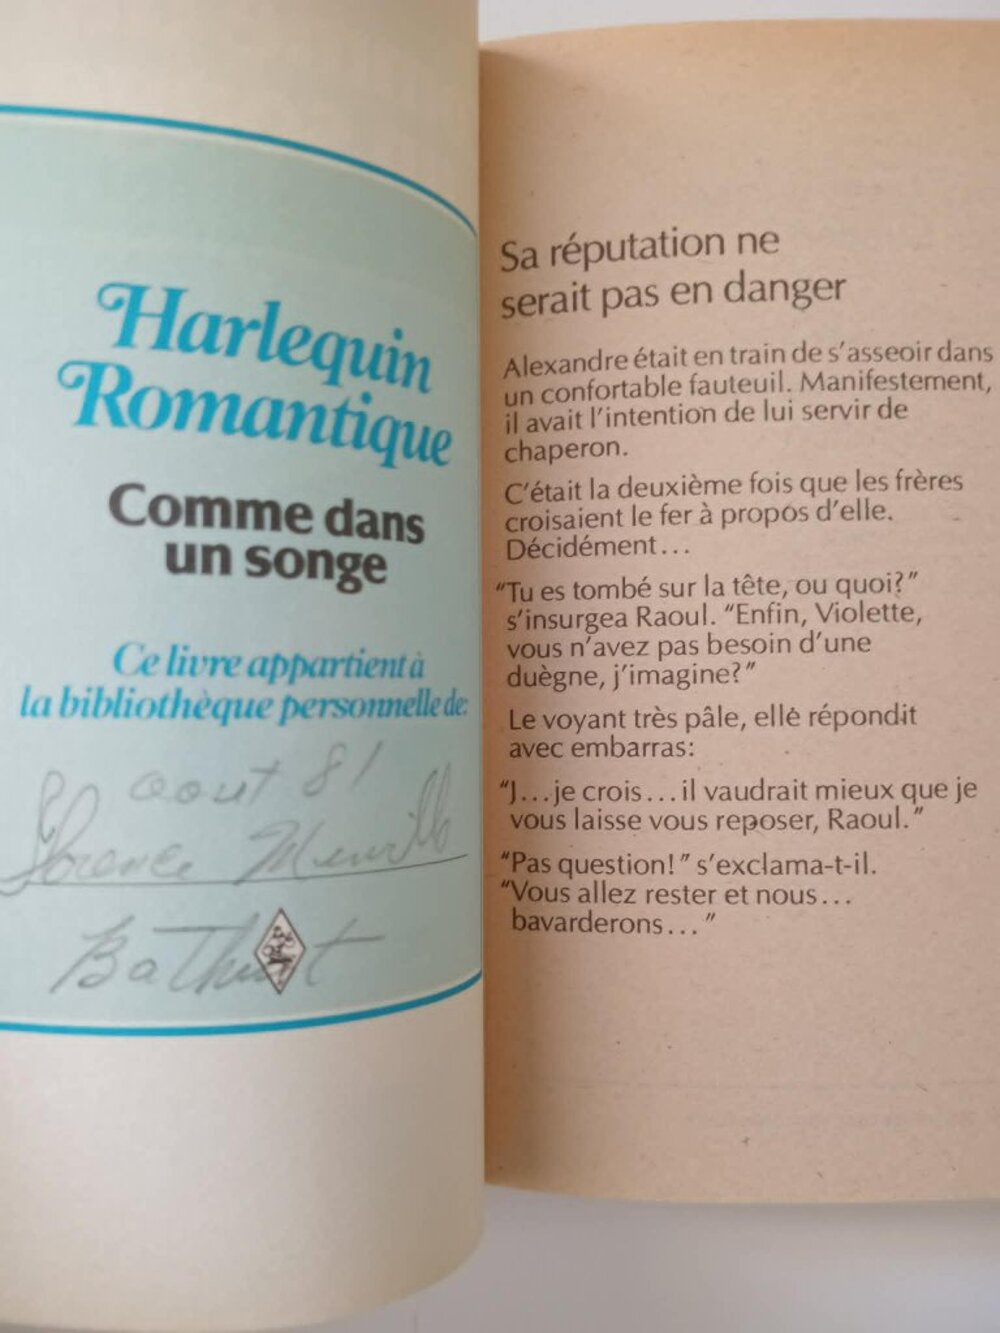 Harlequin
Romantique
Comme dans
un songe
Ce livre appartient à
la bibliothèque personnelle de:
aout 81
Florence
Bathurst
Sa réputation ne
serait pas en danger
Alexandre était en train de s'asseoir dans
un confortable fauteuil. Manifestement,
il avait l'intention de lui servir de
chaperon.
C'était la deuxième fois que les frères
croisaient le fer à propos d'elle.
Décidément...
“Tu es tombé sur la tête, ou quoi?”
s'insurgea Raoul. “Enfin, Violette,
vous n'avez pas besoin d'une
duègne, j'imagine?”
Le voyant très pâle, elle répondit
avec embarras:
“J...je crois...il vaudrait mieux que je
vous laisse vous reposer, Raoul.”
“Pas question!” s'exclama-t-il.
“Vous allez rester et nous...
bavarderons...”